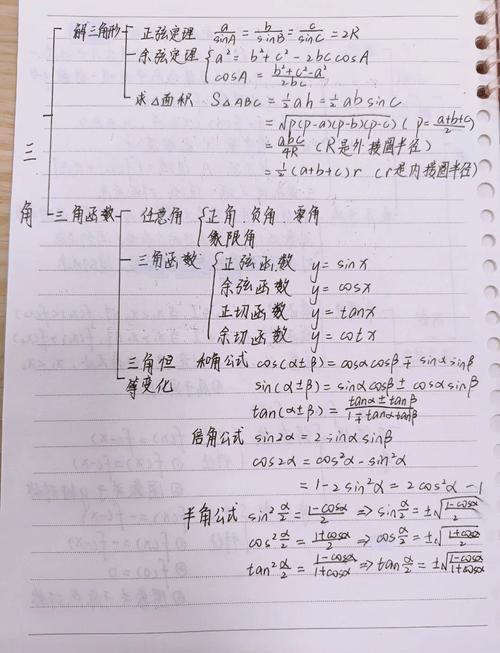 三角
解三角形
正弦定理 a/sinA = b/sinB = c/sinC = 2R
余弦定理 { a² = b² + c² - 2bc cosA
cosA = (b²+c²-a²)/2bc
求△面积 S△ABC = ½ah = ½ab sinC
= √p(p-a)(p-b)(p-c) ( p = (a+b+c)/2 )
= abc/4R (R是外接圆半径)
= ½(a+b+c)r (r是内接圆半径)
三角函数
任意角 { 正角、负角、零角
象限角
三角函数 { 正弦函数 y = sinx
余弦函数 y = cosx
正切函数 y = tanx
余切函数 y = cotx
三角恒等变化
和角公式 cos(α±β) = cosαcosβ ∓ sinαsinβ
sin(α±β) = sinαcosβ ± cosαsinβ
tan(α±β) = (tanα±tanβ)/(1∓tanαtanβ)
倍角公式 sin2α = 2sinαsinβ
cos2α = cos²α - sin²α
= 1-2sin²α = 2cos²α -1
半角公式 sin²α/2 = (1-cosα)/2 ⇒ sinα/2 = ±√(1-cosα)/2
cos²α/2 = (1+cosα)/2 ⇒ cosα/2 = ±√(1+cosα)/2
tan²α/2 = (1-cosα)/(1+cosα) ⇒ tanα/2 = ±√(1-cosα)/(1+cosα)